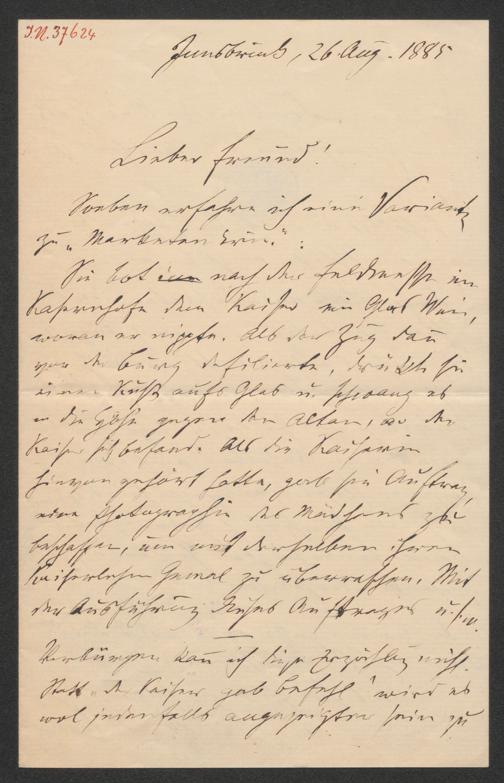 I.N. 37624
Innsbruck, 26. Aug. 1885
Lieber Freund!
Soeben erfahre ich eine Variante
zu „Marketenderin.“:
Sie bot nach der Feldmesse im
Kasernhofe dem Kaiser ein Glas Wein,
woran er nippte. Als der Zug dann
vor der Burg defilierte, drückte sie
einen Kuß aufs Glas u. schwang es
in die Höhe gegen den Altan, wo der
Kaiser sich befand. Als die Kaiserin
hievon gehört hatte, gab sie Auftrag,
eine Photographie des Mädchens zu
beschaffen, um mit derselben ihren
kaiserlichen Gemal zu überraschen. Mit
der Ausführung dieses Auftrages u.s.w.
Verbürgen kann ich diese Erzählung nicht.
Statt „der Kaiser gab Befehl“ wird es
wol jedenfalls angezeigter sein zu